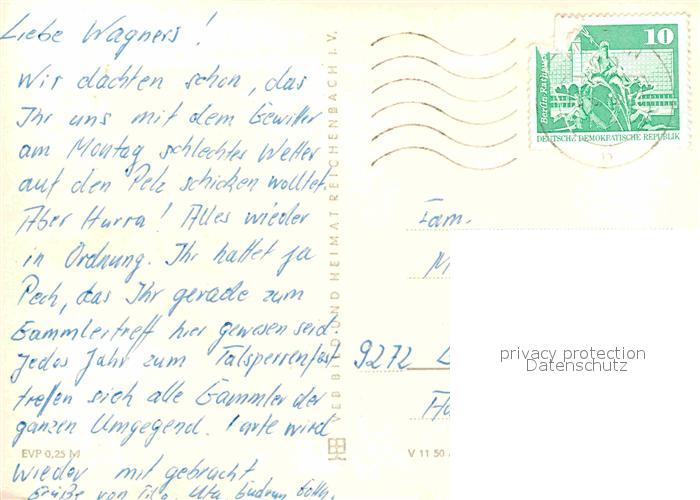 Liebe Wagners!
Wir dachten schon, das
Ihr uns mit dem Gewitter
am Montag schlechtes Wetter
auf den Pelz schicken wolltet.
Aber Hurra! Alles wieder
in Ordnung. Ihr hattet ja
Pech, das Ihr gerade zum
Gammlertreff hier gewesen seid.
Jedes Jahr zum Talsperrenfest
treffen sich alle Gammler der
ganzen Umgegend. Karte wird
wieder mit gebracht
Grüße von Uta, Gudrun
EVP 0,25 M
VEB BILD UND HEIMAT REICHENBACH I. V.
V 11 50
10
Berlin, Rathaus
DEUTSCHE DEMOKRATISCHE REPUBLIK
Fam.
M
9272
privacy protection
Datenschutz